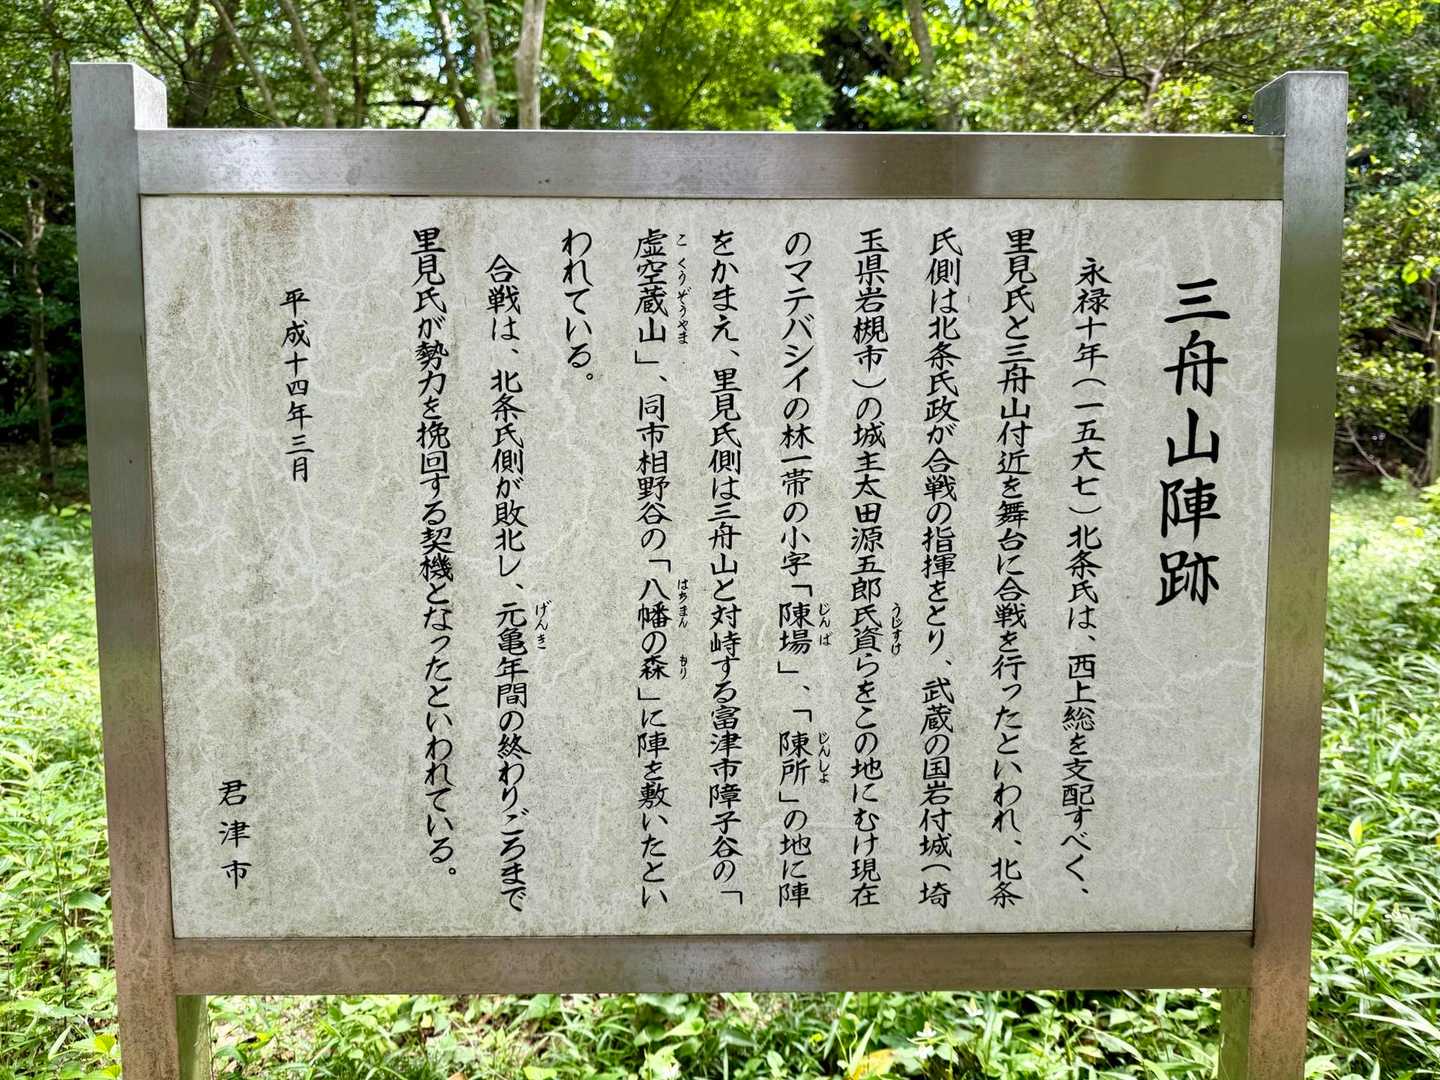 三舟山陣跡
永禄十年（一五六七）北条氏は、西上総を支配すべく、
里見氏と三舟山付近を舞台に合戦を行ったといわれ、北条
氏側は北条氏政が合戦の指揮をとり、武蔵の国岩付城（埼
玉県岩槻市）の城主太田源五郎氏資らをこの地にむけ現在
うじすけ
のマテバシイの林一帯の小字「陣場」、「陣所」の地に陣
じんば
じんしょ
をかまえ、里見氏側は三舟山と対峙する富津市障子谷の「
虚空蔵山」、同市相野谷の「八幡の森」に陣を敷いたとい
こくうぞうやま
はちまん
もり
われている。
合戦は、北条氏側が敗北し、元亀年間の終わりごろまで
げんき
里見氏が勢力を挽回する契機となったといわれている。
平成十四年三月
君津市